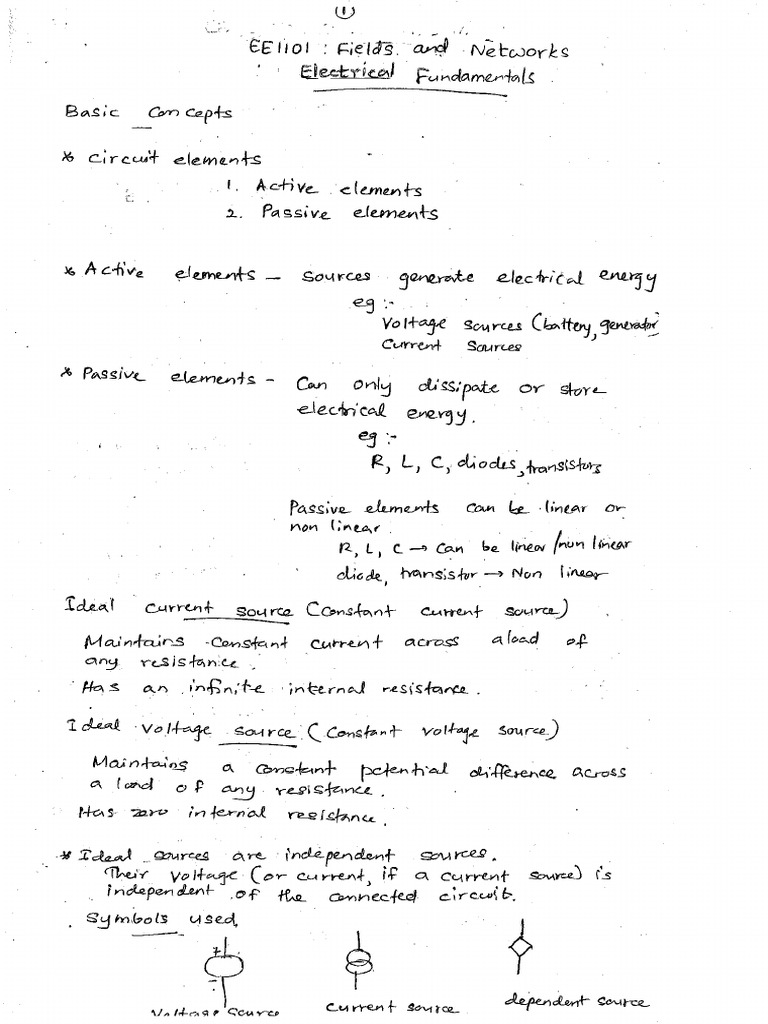 1
EE1101 : Fields and Networks
Electrical Fundamentals
Basic Concepts
* Circuit elements
1. Active elements
2. Passive elements
* Active elements - Sources generate electrical energy
eg :-
Voltage sources (battery, generator)
Current Sources
* Passive elements - Can only dissipate or store
electrical energy.
eg :-
R, L, C, diodes, transistors
Passive elements can be linear or
non linear.
R, L, C → Can be linear/non linear
diode, transistor → Non linear
Ideal current source (Constant current source)
Maintains constant current across a load of
any resistance.
Has an infinite internal resistance.
Ideal voltage source (Constant voltage source)
Maintains a constant potential difference across
a load of any resistance.
Has zero internal resistance.
* Ideal sources are independent sources.
Their voltage (or current, if a current source) is
independent of the connected circuit.
Symbols used
+
-
Voltage Source current source dependent source